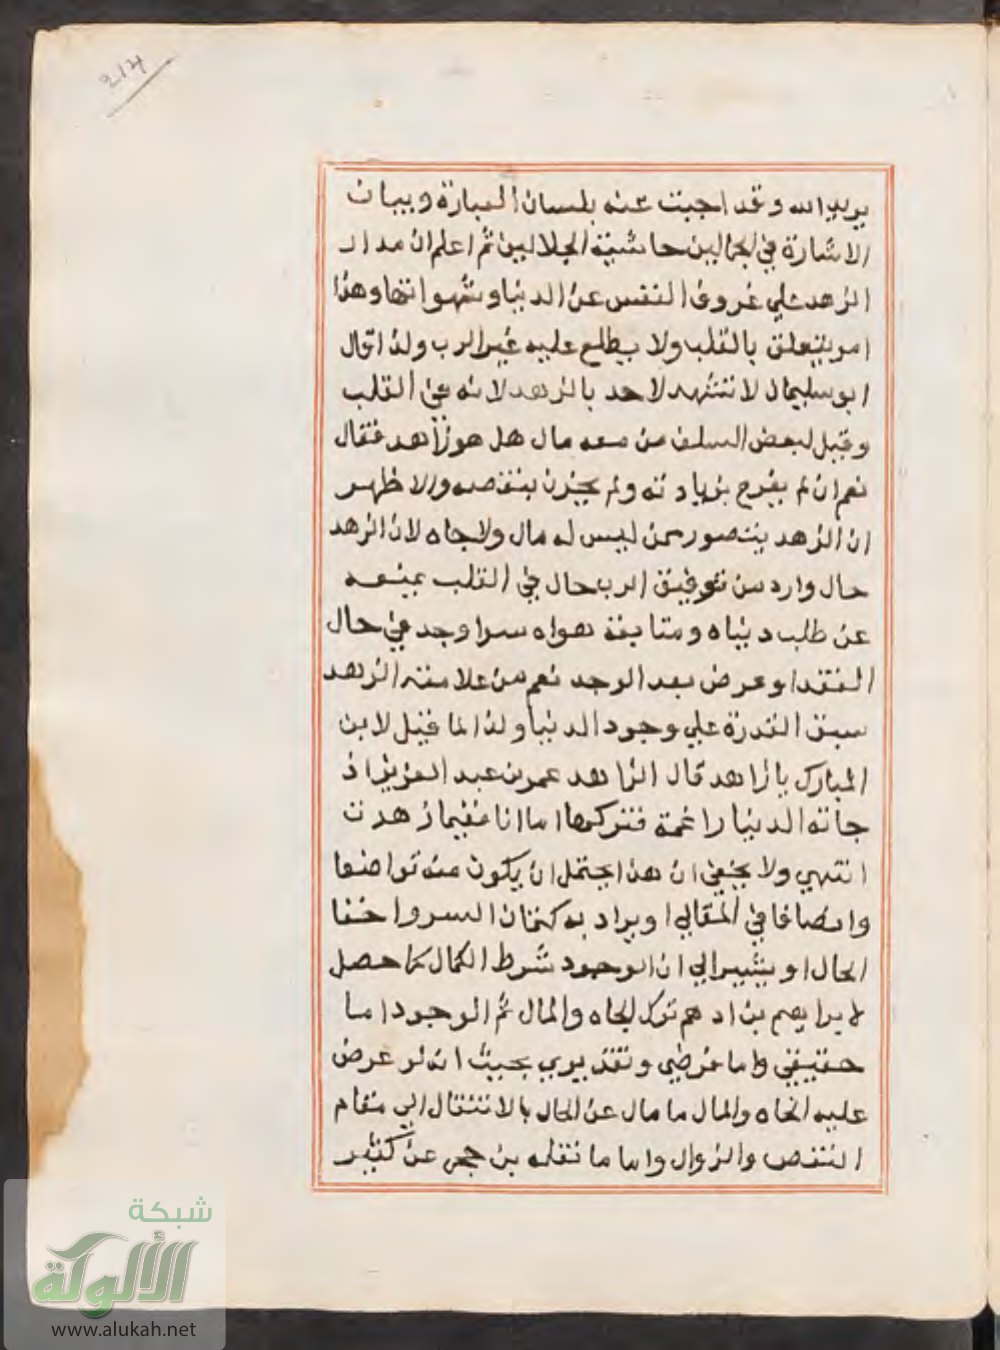 214
يريد الله وقد اجبت عنه بلسان العبارة وبيان
الاشارة في الجمالين حاشية الجلالين ثم اعلم ان مدار
الزهد علي عزوف النفس عن الدنيا وشهواتها وهذا
امر يتعلق بالقلب ولا يطلع عليه غير الرب ولذا قال
ابو سليمان لا تشهد لاحد بالزهد لانه في القلب
وقيل لبعض السلف من معه مال هل هو زاهد فقال
نعم ان لم يفرح بزيادته ولم يحزن بنقصه والاظهر
ان الزهد يتصور ممن ليس له مال ولا جاه لان الزهد
حال وارد من توفيق الرب حال في القلب يمنعه
عن طلب دنياه ومتابعة هواه سوا وجد في حال
الفقد او عرض بعد الوجد نعم من علامته الزهد
سبق القدرة علي وجود الدنيا ولذا لما قيل لابن
المبارك يا زاهد قال الزاهد عمر بن عبد العزيز اذ
جاته الدنيا راغمة فتركها اما انا ففيما زهدت
انتهي ولا يخفي ان هذا يحتمل ان يكون منه تواضعا
وانصافا في المقالي او يراد به كتمان السر واخفا
الحال او يشير الي ان الوجود شرط الكمال كما حصل
لابراهيم بن ادهم ترك الجاه والمال ثم الوجود اما
حقيقي واما فرضي وتقديري بحيث انه لو عرض
عليه الجاه والمال ما مال عن الحال بالانتقال الي مقام
النقص والزوال واما ما نقله بن حجر عن كثير
شبكة
الألوكة
www.alukah.net